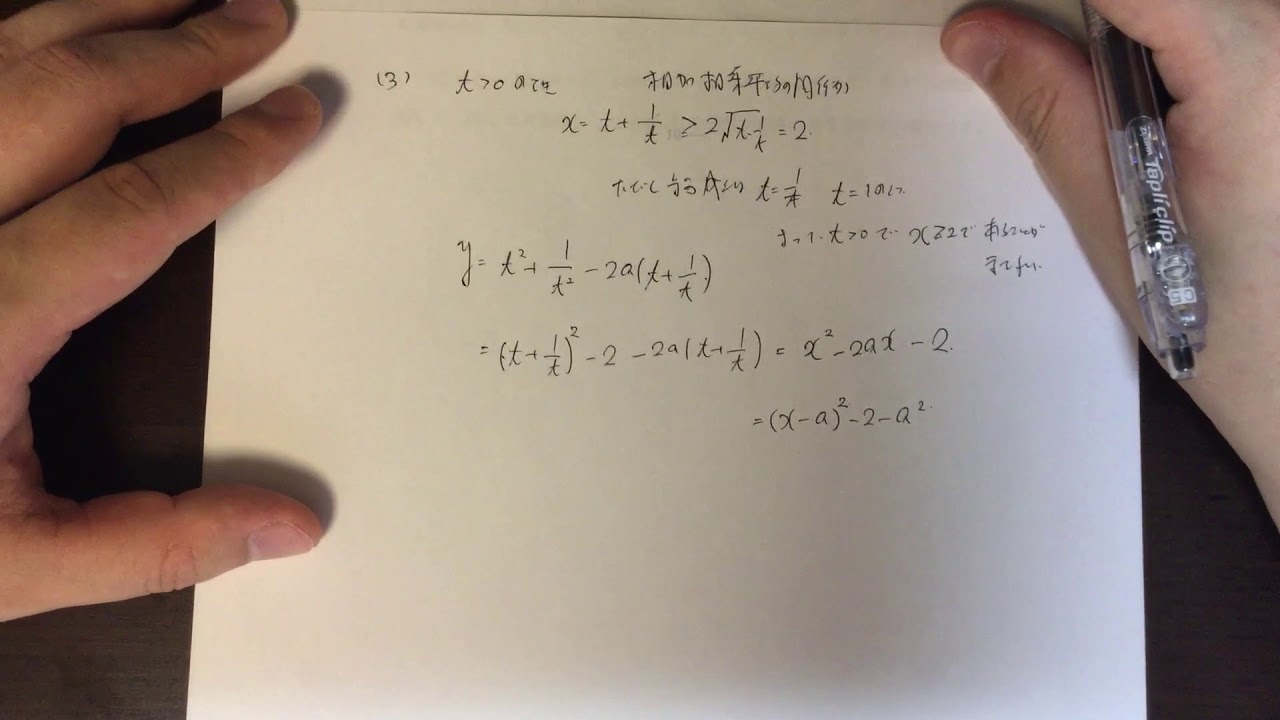 (3) t>0のとき 相加相乗平均の関係から
x = t + 1/t ≥ 2√(t・1/t) = 2.
ただし等号成立は t = 1/t t = 1のとき.
よって t>0で x≧2で あることが
示せた.
y = t² + 1/t² - 2a(t + 1/t)
= (t + 1/t)² - 2 - 2a(t + 1/t) = x² - 2ax - 2.
= (x-a)² - 2 - a².
ZEBRA Tapli clip 0.5